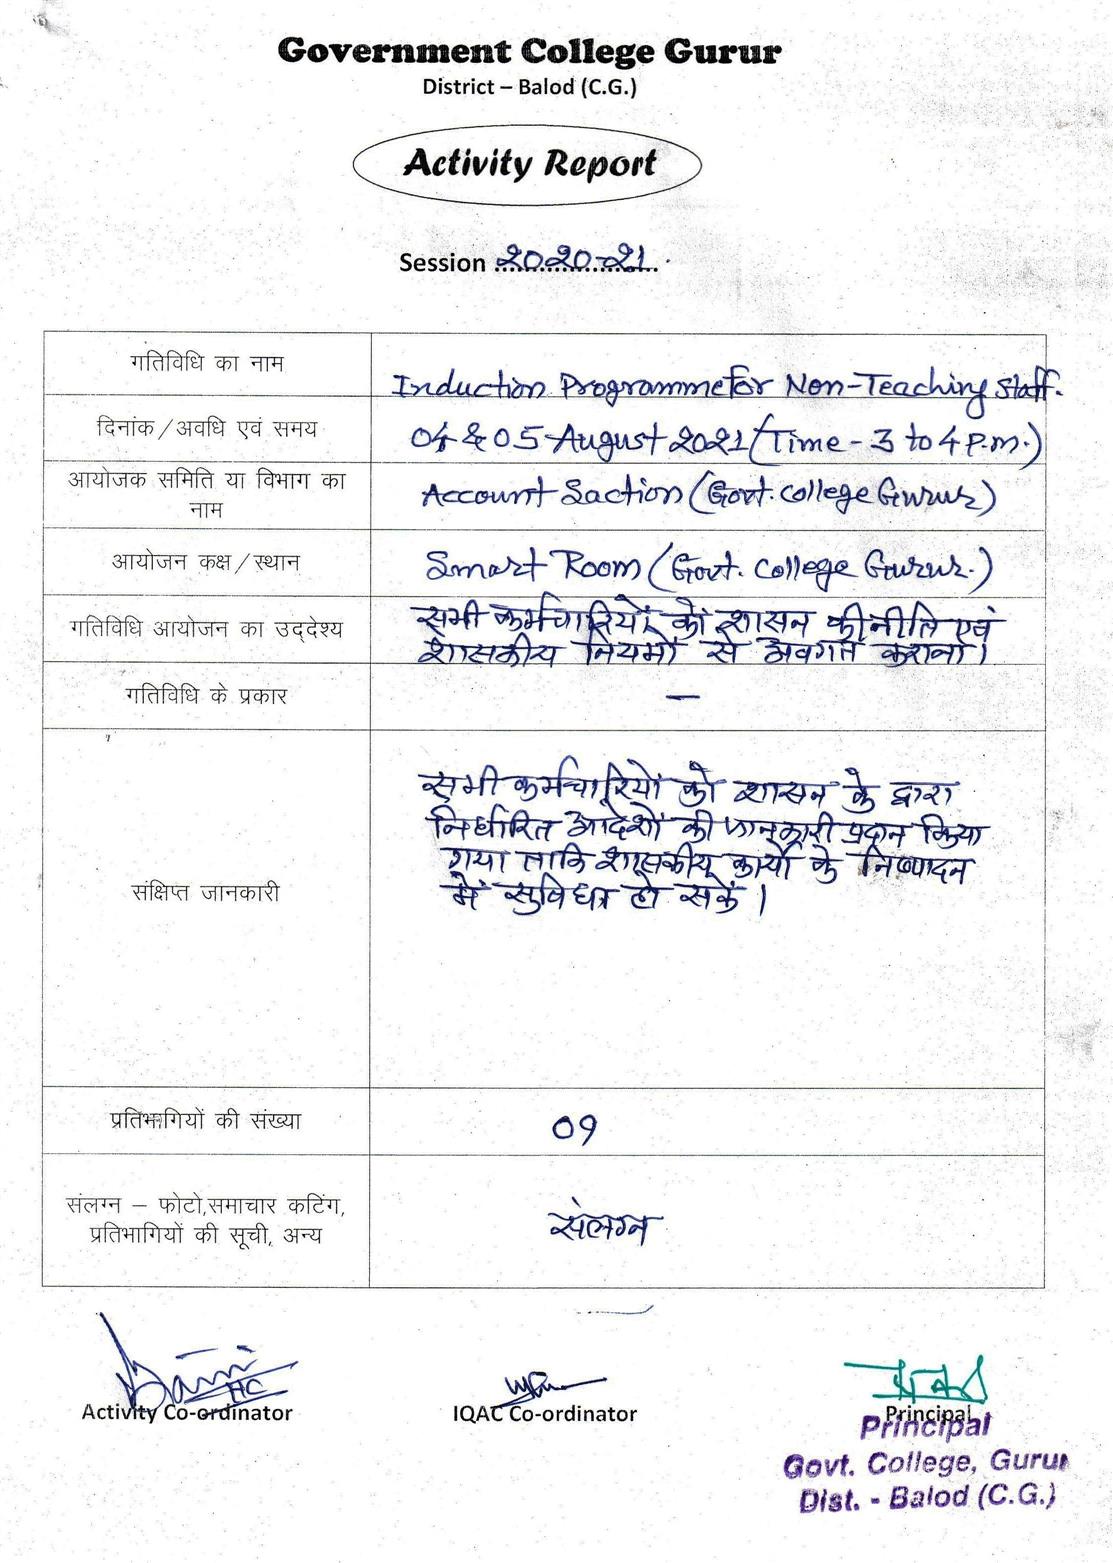 Government College Gurur
District – Balod (C.G.)
Activity Report
Session 2020-21.
गतिविधि का नाम
Induction Programme for Non-Teaching Staff.
दिनांक/अवधि एवं समय
04 & 05 August 2021 (Time - 3 to 4 P.m.)
आयोजक समिति या विभाग का
नाम
Account Saction (Govt. college Gurur)
आयोजन कक्ष/स्थान
Smart Room (Govt. College Gurur.)
गतिविधि आयोजन का उद्देश्य
सभी कर्मचारियों को शासन की नीति एवं
शासकीय नियमों से अवगत कराना।
गतिविधि के प्रकार
—
संक्षिप्त जानकारी
सभी कर्मचारियों को शासन के द्वारा
निर्धारित आदेशों की जानकारी प्रदान किया
गया ताकि शासकीय कार्यो के निष्पादन
में सुविधा हो सकें।
प्रतिभागियों की संख्या
09
संलग्न – फोटो,समाचार कटिंग,
प्रतिभागियों की सूची, अन्य
संलग्न
Activity Co-ordinator
IQAC Co-ordinator
Principal
Principal
Govt. College, Gurur
Dist. - Balod (C.G.)